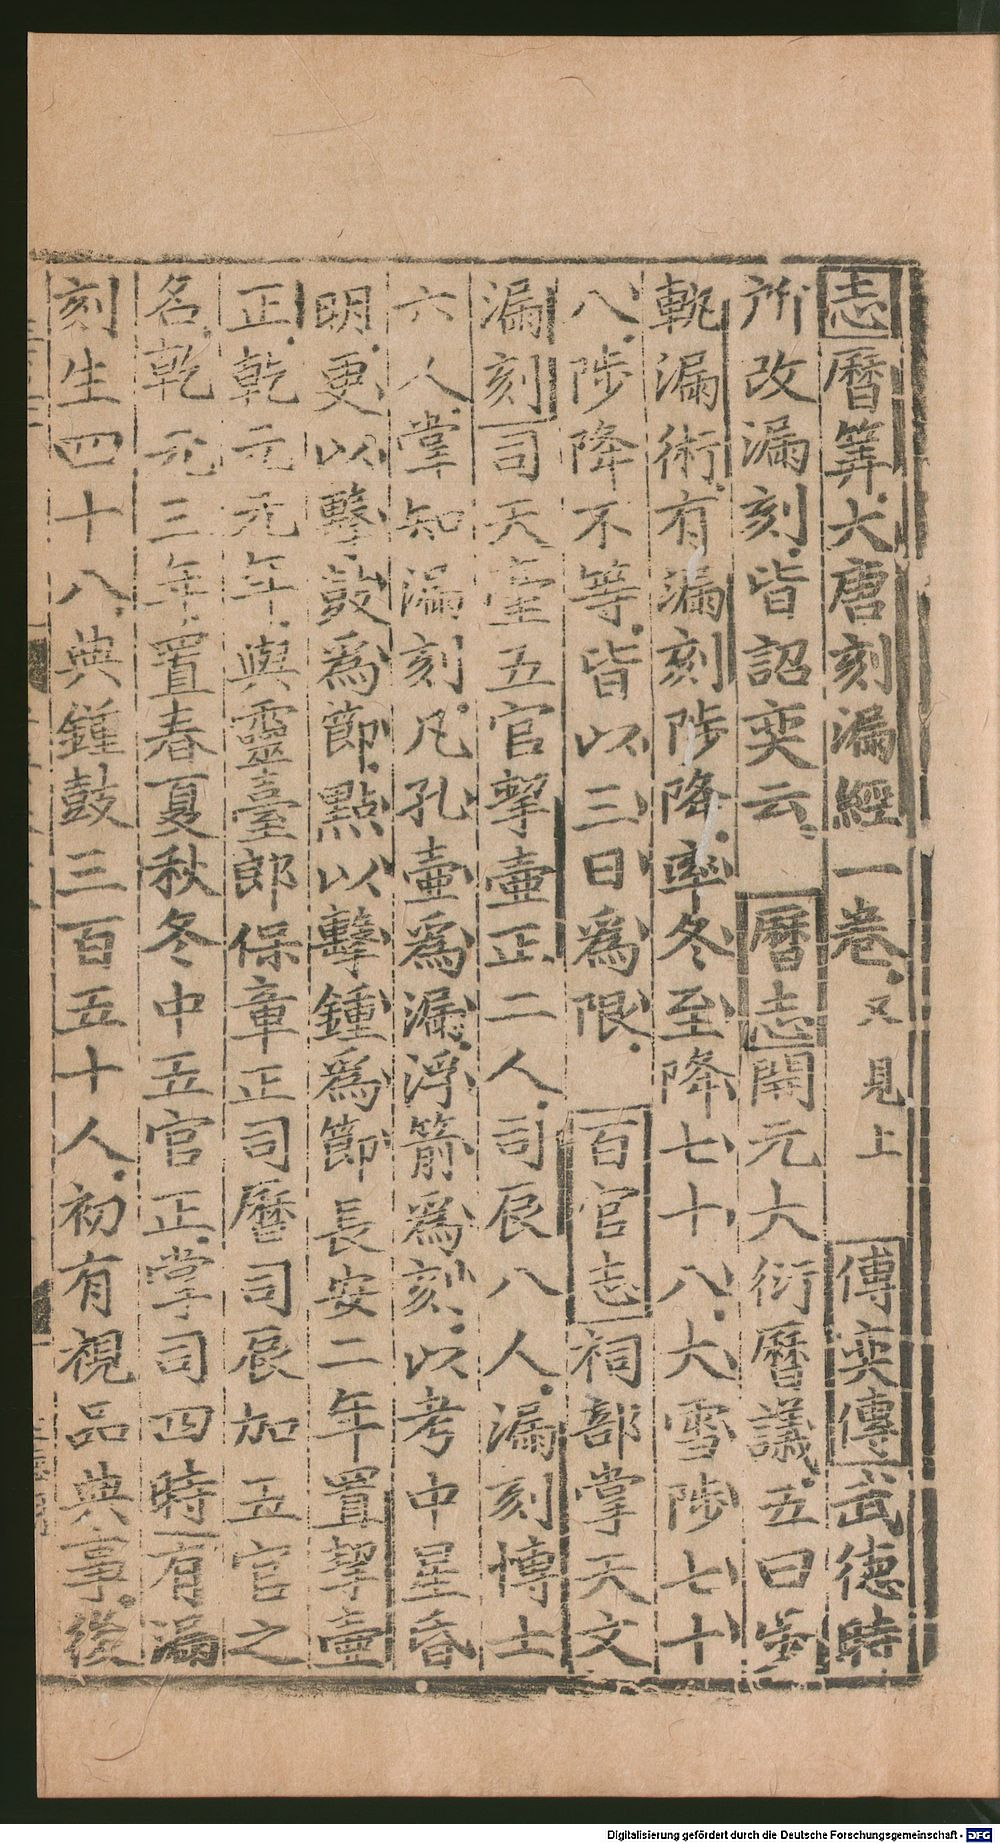 志曆筭大唐刻漏經一卷又見上傅奕傳武德時
所改漏刻皆詔奕云曆志開元大衍曆議五曰步
軌漏術有漏刻陟降率冬至降七十八大雪陟七十
八陟降不等皆以三日為限百官志祠部掌天文
漏刻司天臺五官挈壼正二人司辰八人漏刻博士
六人掌知漏刻凡孔壼為漏浮箭為刻以考中星昏
明更以擊鼓為節點以擊鍾為節長安二年置挈壼
正乾元元年與靈臺郎保章正司曆司辰加五官之
名乾元三年置春夏秋冬中五官正掌司四時有漏
刻生四十八典鍾鼓三百五十人初有視品典事後
Digitalisierung gefördert durch die Deutsche Forschungsgemeinschaft - DFG